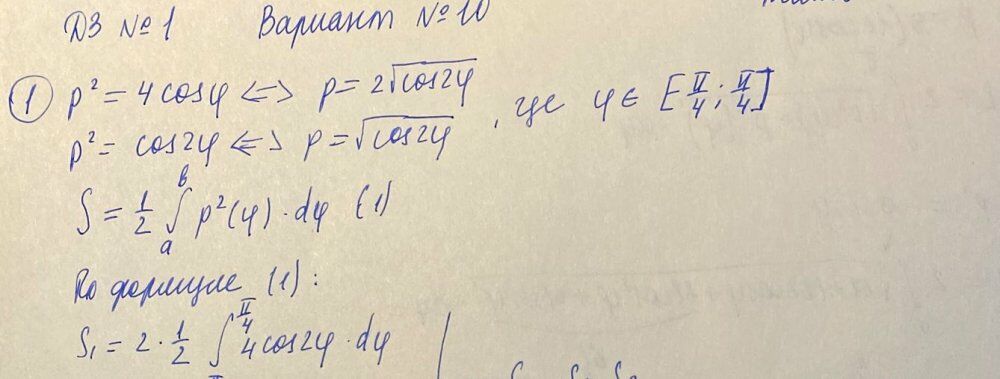 ДЗ №1 Вариант №10
① ρ² = 4cosφ <=> ρ = 2√cos2φ
, где φ ∈ [π/4; π/4]
ρ² = cos2φ <=> ρ = √cos2φ
S = 1/2 ∫ₐᵇ ρ²(φ)·dφ (1)
По формуле (1):
S₁ = 2·1/2 ∫^(π/4) 4cos2φ·dφ